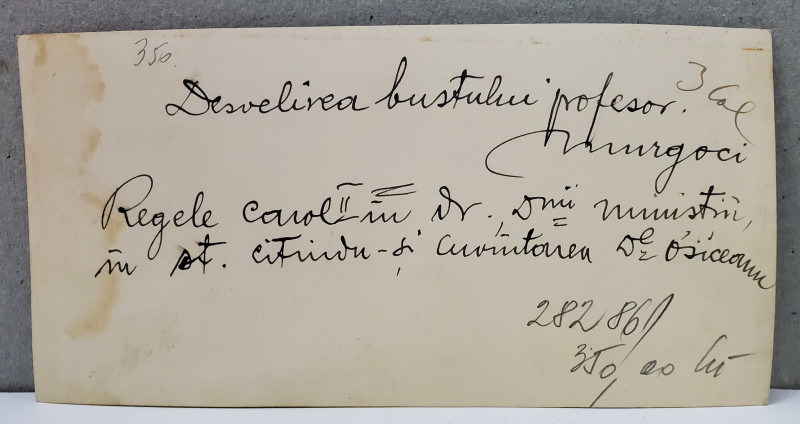 350.
3 Col
Desvelirea bustului profesor.
Murgoci
Regele Carol II în dr., Dnii miniștrii,
în st. citindu-și cuvîntarea Dl Osiceanu
28286
350,00 lei